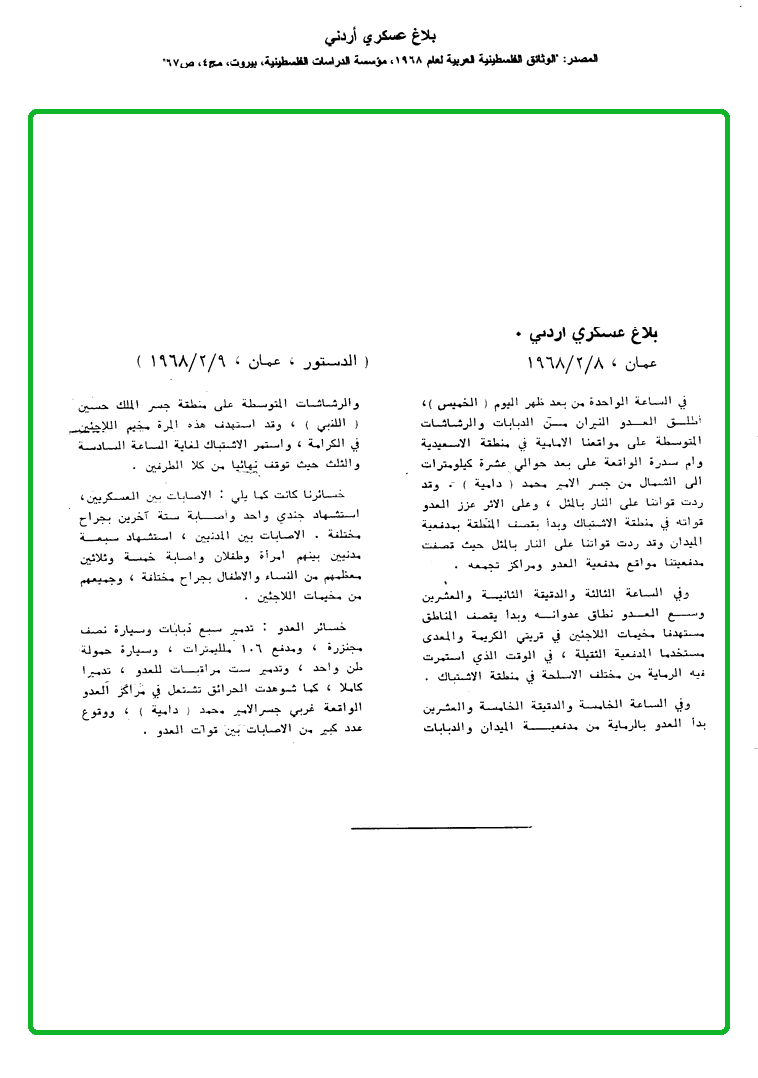 بلاغ عسكري أردني
المصدر: "الوثائق الفلسطينية العربية لعام ١٩٦٨، مؤسسة الدراسات الفلسطينية، بيروت، مج٤، ص٦٧"
بلاغ عسكري اردني .
عمان ، ١٩٦٨/٢/٨
( الدستور ، عمان ، ١٩٦٨/٢/٩ )
في الساعة الواحدة من بعد ظهر اليوم ( الخميس ) ،
أطلق العدو النيران من الدبابات والرشاشات
المتوسطة على مواقعنا الامامية في منطقة الاسعيدية
وام سدرة الواقعة على بعد حوالي عشرة كيلومترات
الى الشمال من جسر الامير محمد ( دامية ) . وقد
ردت قواتنا على النار بالمثل ، وعلى الاثر عزز العدو
قواته في منطقة الاشتباك وبدأ بقصف المنطقة بمدفعية
الميدان وقد ردت قواتنا على النار بالمثل حيث قصفت
مدفعيتنا مواقع مدفعية العدو ومراكز تجمعه .
وفي الساعة الثالثة والدقيقة الثانية والعشرين
وسع العدو نطاق عدوانه وبدأ يقصف المناطق
مستهدفا مخيمات اللاجئين في قريتي الكريمة والمعدى
مستخدما المدفعية الثقيلة ، في الوقت الذي استمرت
فيه الرماية من مختلف الاسلحة في منطقة الاشتباك .
وفي الساعة الخامسة والدقيقة الخامسة والعشرين
بدأ العدو بالرماية من مدفعية الميدان والدبابات
والرشاشات المتوسطة على منطقة جسر الملك حسين
( اللنبي ) ، وقد استهدف هذه المرة مخيم اللاجئين
في الكرامة ، واستمر الاشتباك لغاية الساعة السادسة
والثلث حيث توقف نهائيا من كلا الطرفين .
خسائرنا كانت كما يلي : الاصابات بين العسكريين،
استشهاد جندي واحد واصابة ستة آخرين بجراح
مختلفة . الاصابات بين المدنيين ، استشهاد سبعة
مدنيين بينهم امرأة وطفلان واصابة خمسة وثلاثين
معظمهم من النساء والاطفال بجراح مختلفة ، وجميعهم
من مخيمات اللاجئين .
خسائر العدو : تدمير سبع دبابات وسيارة نصف
مجنزرة ، ومدفع ١٠٦ ملليمترات ، وسيارة حمولة
طن واحد ، وتدمير ست مراقبات للعدو ، تدميرا
كاملا ، كما شوهدت الحرائق تشتعل في مراكز العدو
الواقعة غربي جسر الامير محمد ( دامية ) ، ووقوع
عدد كبير من الاصابات بين قوات العدو .